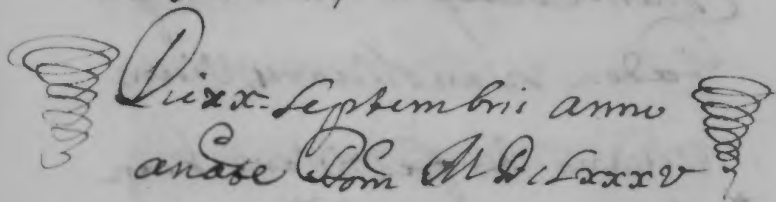 Die xx. Septembris anno
a nate Dom MDCLxxxv